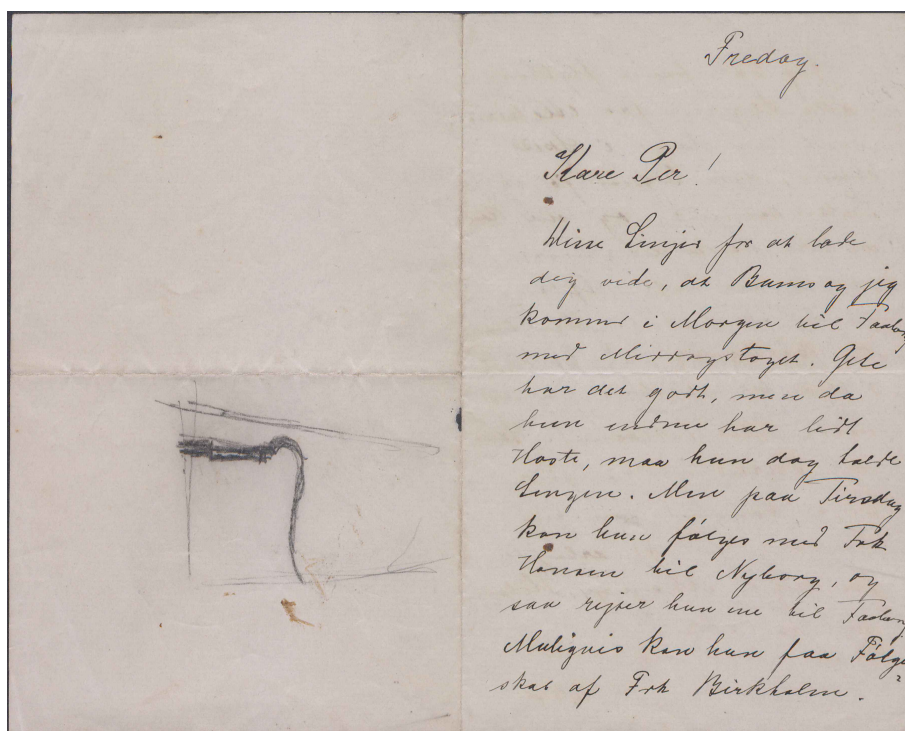 Fredag.
Kære Per!
Disse Linjer for at lade
dig vide, at Bams og jeg
kommer i Morgen til Faaborg
med Middagstoget. Gete
har det godt, men da
hun endnu har lidt
Hoste, maa hun dog holde
Sengen. Men paa Tirsdag
kan hun følges med Frk
Hansen til Nyborg, og
saa rejser hun ene til Faaborg
Muligvis kan hun faa Følge-
skab af Frk Birkholm.